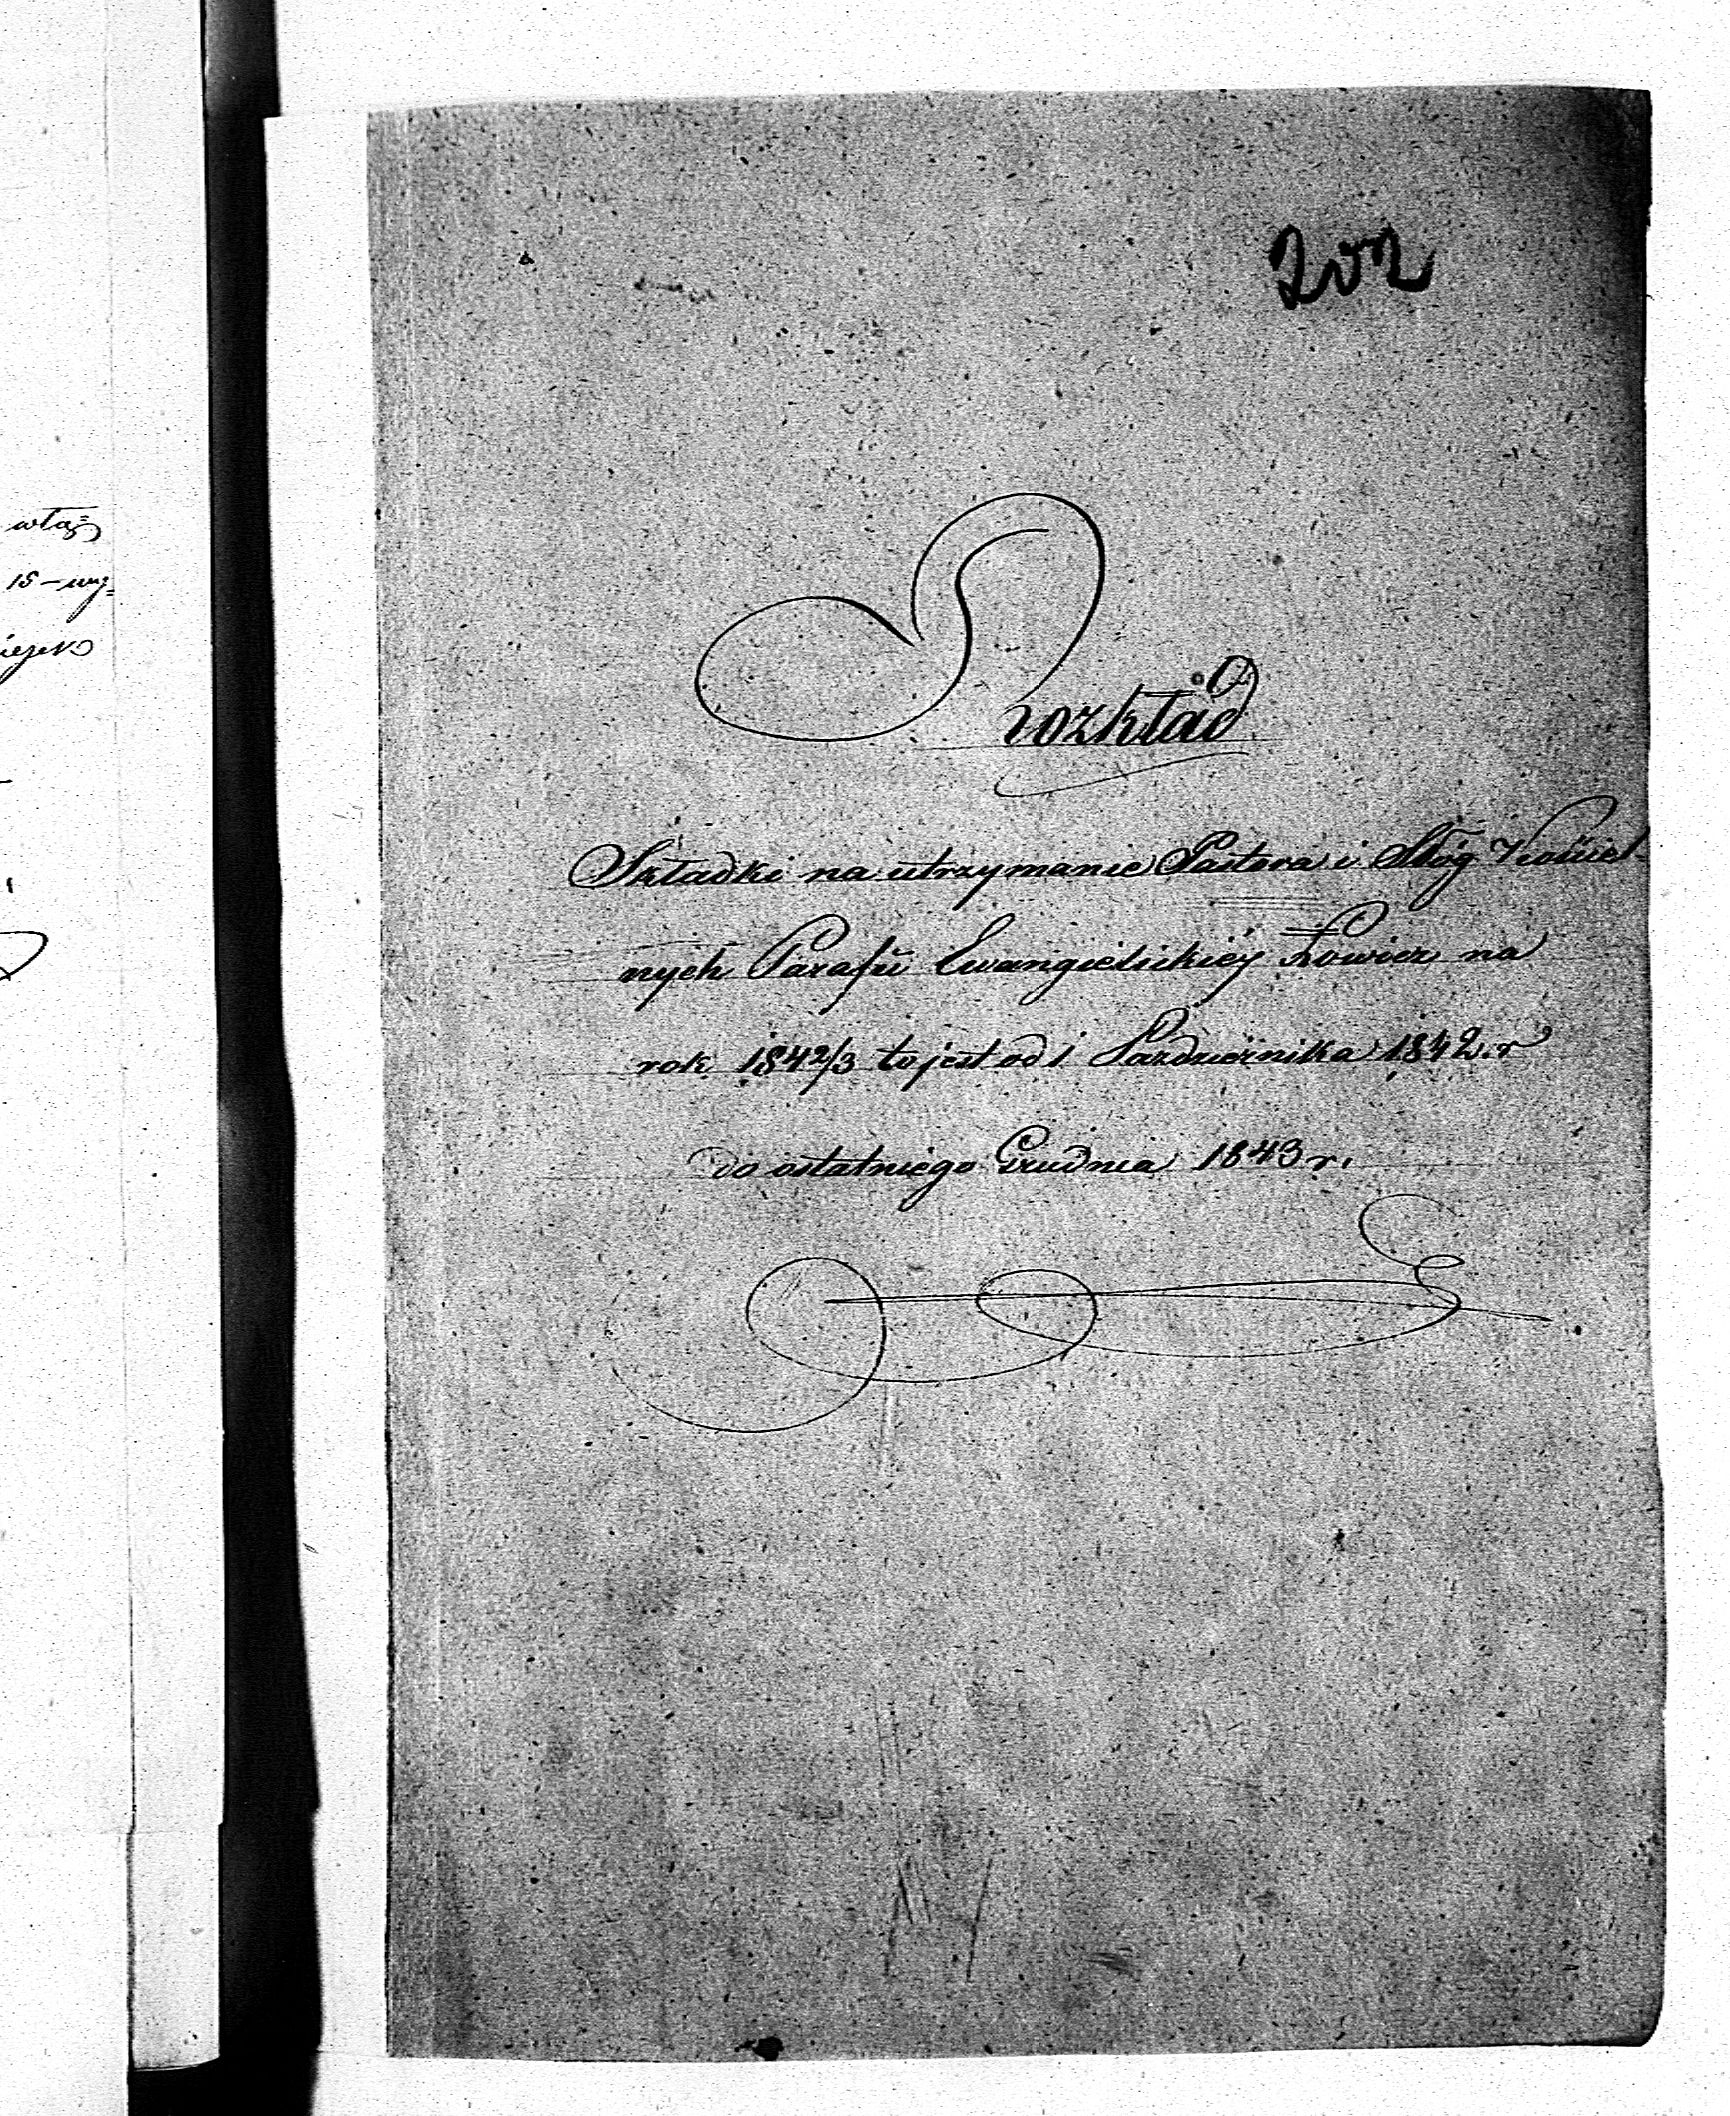 włas=
15 – wy=
202
Rozkład
Składki na utrzymanie Pastora i Sług Kościel
nych Parafii Ewangielickiéy Łowicz na
rok 1842/3 to jest od 1 Października 1842. r
do ostatniego Grudnia 1843 r.